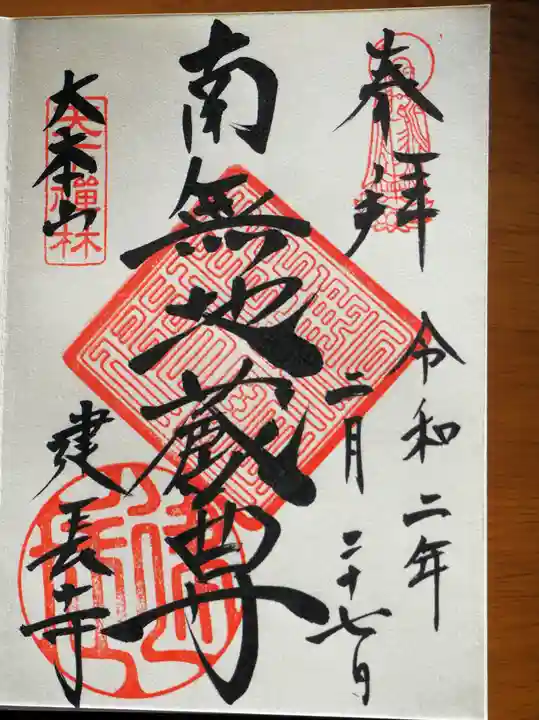 奉拝
令和二年
二月
二十七日
南無地蔵尊
大本山
建長寺
天下禅林